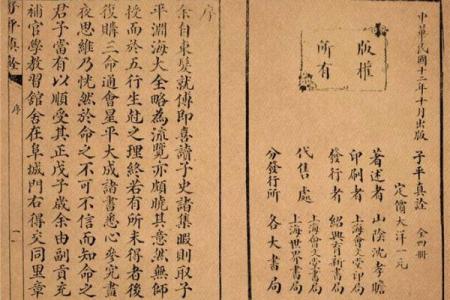 中華民國十二年十月出版
子平真詮 全四冊
定價大洋一元
版權
所有
著述者 山陰沈孝瞻
印刷者 上海會文堂印局
發行者 紹興育新書局
代售處 上海會文堂書局
上海世界書局
分發行所 各大書局
序
余自束髮就傅即喜讀子史諸集暇則取子
平淵海大全略為流覽亦頗曉其意然無師
授而於五行生尅之理終若有所未得者後
復購三命通會星平大成諸書悉心參究晝
夜思維乃恍然於命之不可不信而知命之
君子當有以順受其正戊子歲余由副貢充
補官學教習館舍在阜城門右得交同里章
子平真詮 序 一